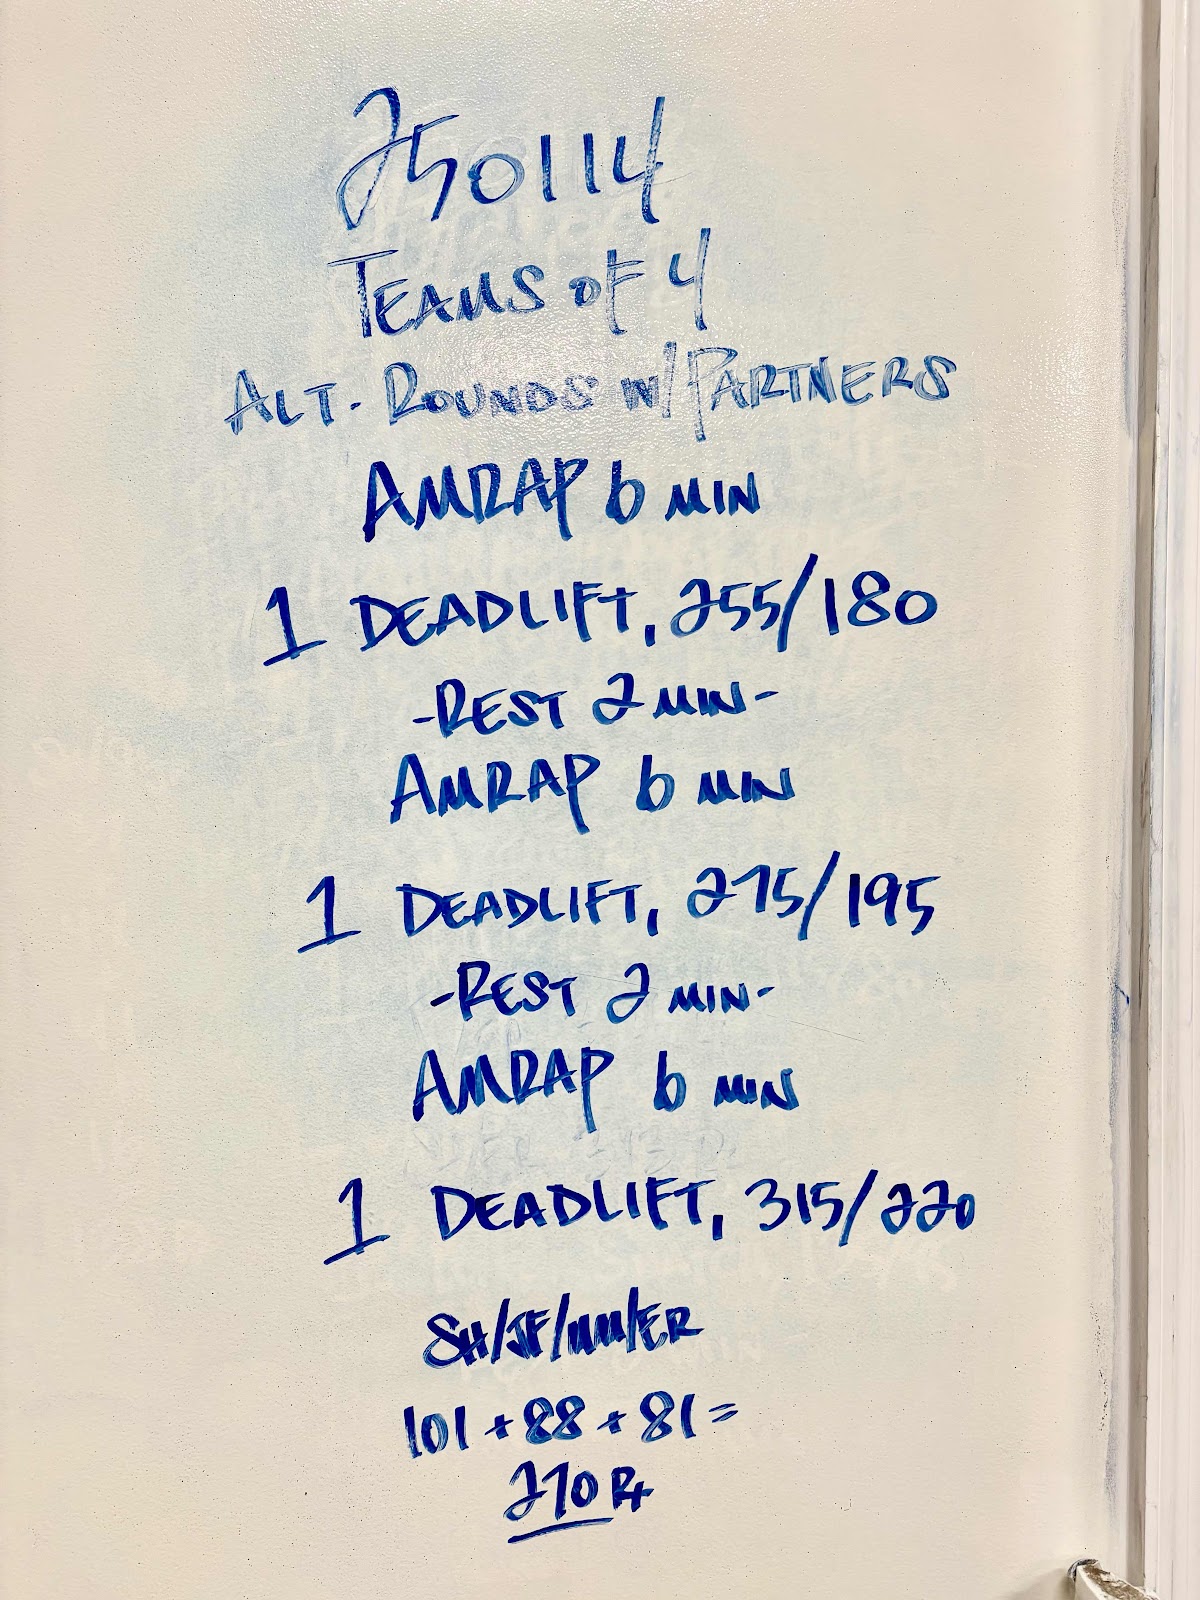 250114
TEAMS OF 4
ALT. ROUNDS W/PARTNERS
AMRAP 6 MIN
1 DEADLIFT, 255/180
-REST 2 MIN-
AMRAP 6 MIN
1 DEADLIFT, 275/195
-REST 2 MIN-
AMRAP 6 MIN
1 DEADLIFT, 315/220
SH/JF/MM/ER
101+88+81=
270 Rx